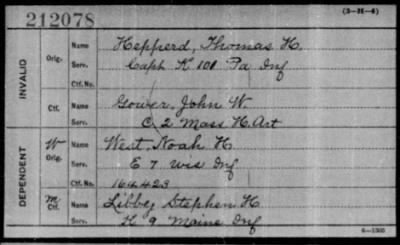 212078
(3-H-4)
INVALID
Orig.
Name Hepperd, Thomas H.
Serv. Capt K 101 Pa Inf
Ctf. No.
Ctf.
Name Gower, John W.
Serv. C, 2 Mass H. Art
DEPENDENT
W Orig.
Name West, Noah H
Serv. E 7 Wis Inf
Ctf. No. 164423
M Ctf.
Name Libby, Stephen H
Serv. H 9 Maine Inf